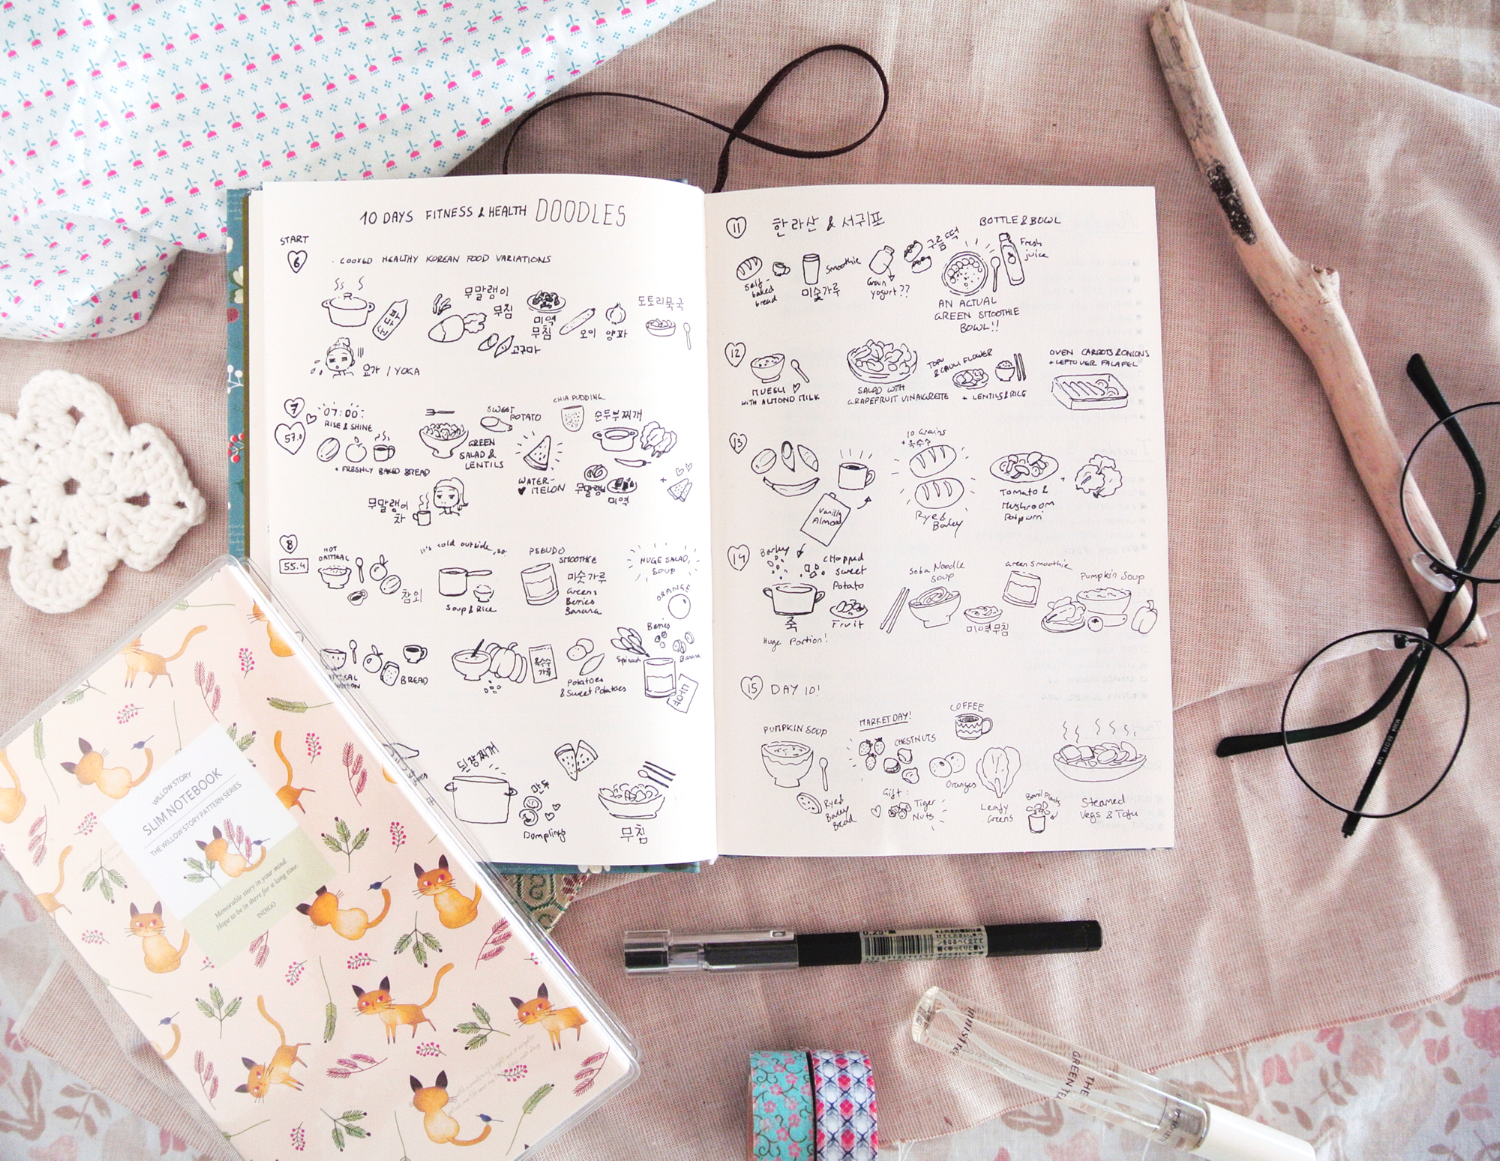 10 DAYS FITNESS & HEALTH DOODLES
START
6
· COOKED HEALTHY KOREAN FOOD VARIATIONS
무말랭이
무침
미역
무침
오이
양파
도토리묵국
고구마
요가 / YOGA
7
57.0
07:00
RISE & SHINE
+ FRESHLY BAKED BREAD
GREEN
SALAD &
LENTILS
SWEET
POTATO
WATER-
MELON
CHIA PUDDING
순두부찌개
무말랭이
미역
무말랭이
차
8
55.4
HOT
OATMEAL
참외
it's cold outside, so
Soup & Rice
PSEUDO
SMOOTHIE
미숫가루
Greens
Berries
Banana
HUGE SALAD,
SOUP
ORANGE
BREAD
옥수수
가루
Potatoes
& Sweet Potatoes
Berries
Spinach
Banana
된장찌개
만두
Dumplings
무침
11
한라산 & 서귀포
BOTTLE & BOWL
self-
baked
bread
Smoothie
미숫가루
Grain
yogurt??
구름떡
Fresh
juice
AN ACTUAL
GREEN SMOOTHIE
BOWL!!
12
MUESLI
WITH ALMOND MILK
SALAD WITH
GRAPEFRUIT VINAIGRETTE
TOFU
& CAULIFLOWER
+ LENTILS & RICE
OVEN CARROTS & ONIONS
+ LEFTOVER FALAFEL
13
Vanilla
Almond
10 Grains
+ 옥수수
Rye &
Barley
Tomato &
Mushroom
Potpurri
+
14
Barley
CHopped
Sweet
Potato
죽
Huge Portion!
Fruit
Soba Noodle
Soup
미역무침
Green Smoothie
Pumpkin Soup
15
DAY 10!
PUMPKIN SOUP
Rye &
Barley
Bread
MARKET DAY!
CHESTNUTS
Gift:
Tiger
Nuts
COFFEE
Oranges
Leafy
Greens
Basil Plants
Steamed
Vegs & Tofu
WILLOW STORY
SLIM NOTEBOOK
THE WILLOW STORY PATTERN SERIES
Memorable story in your mind
Hope to be in there for a long time.
INDIGO
innisfree
THE
GREEN TEA